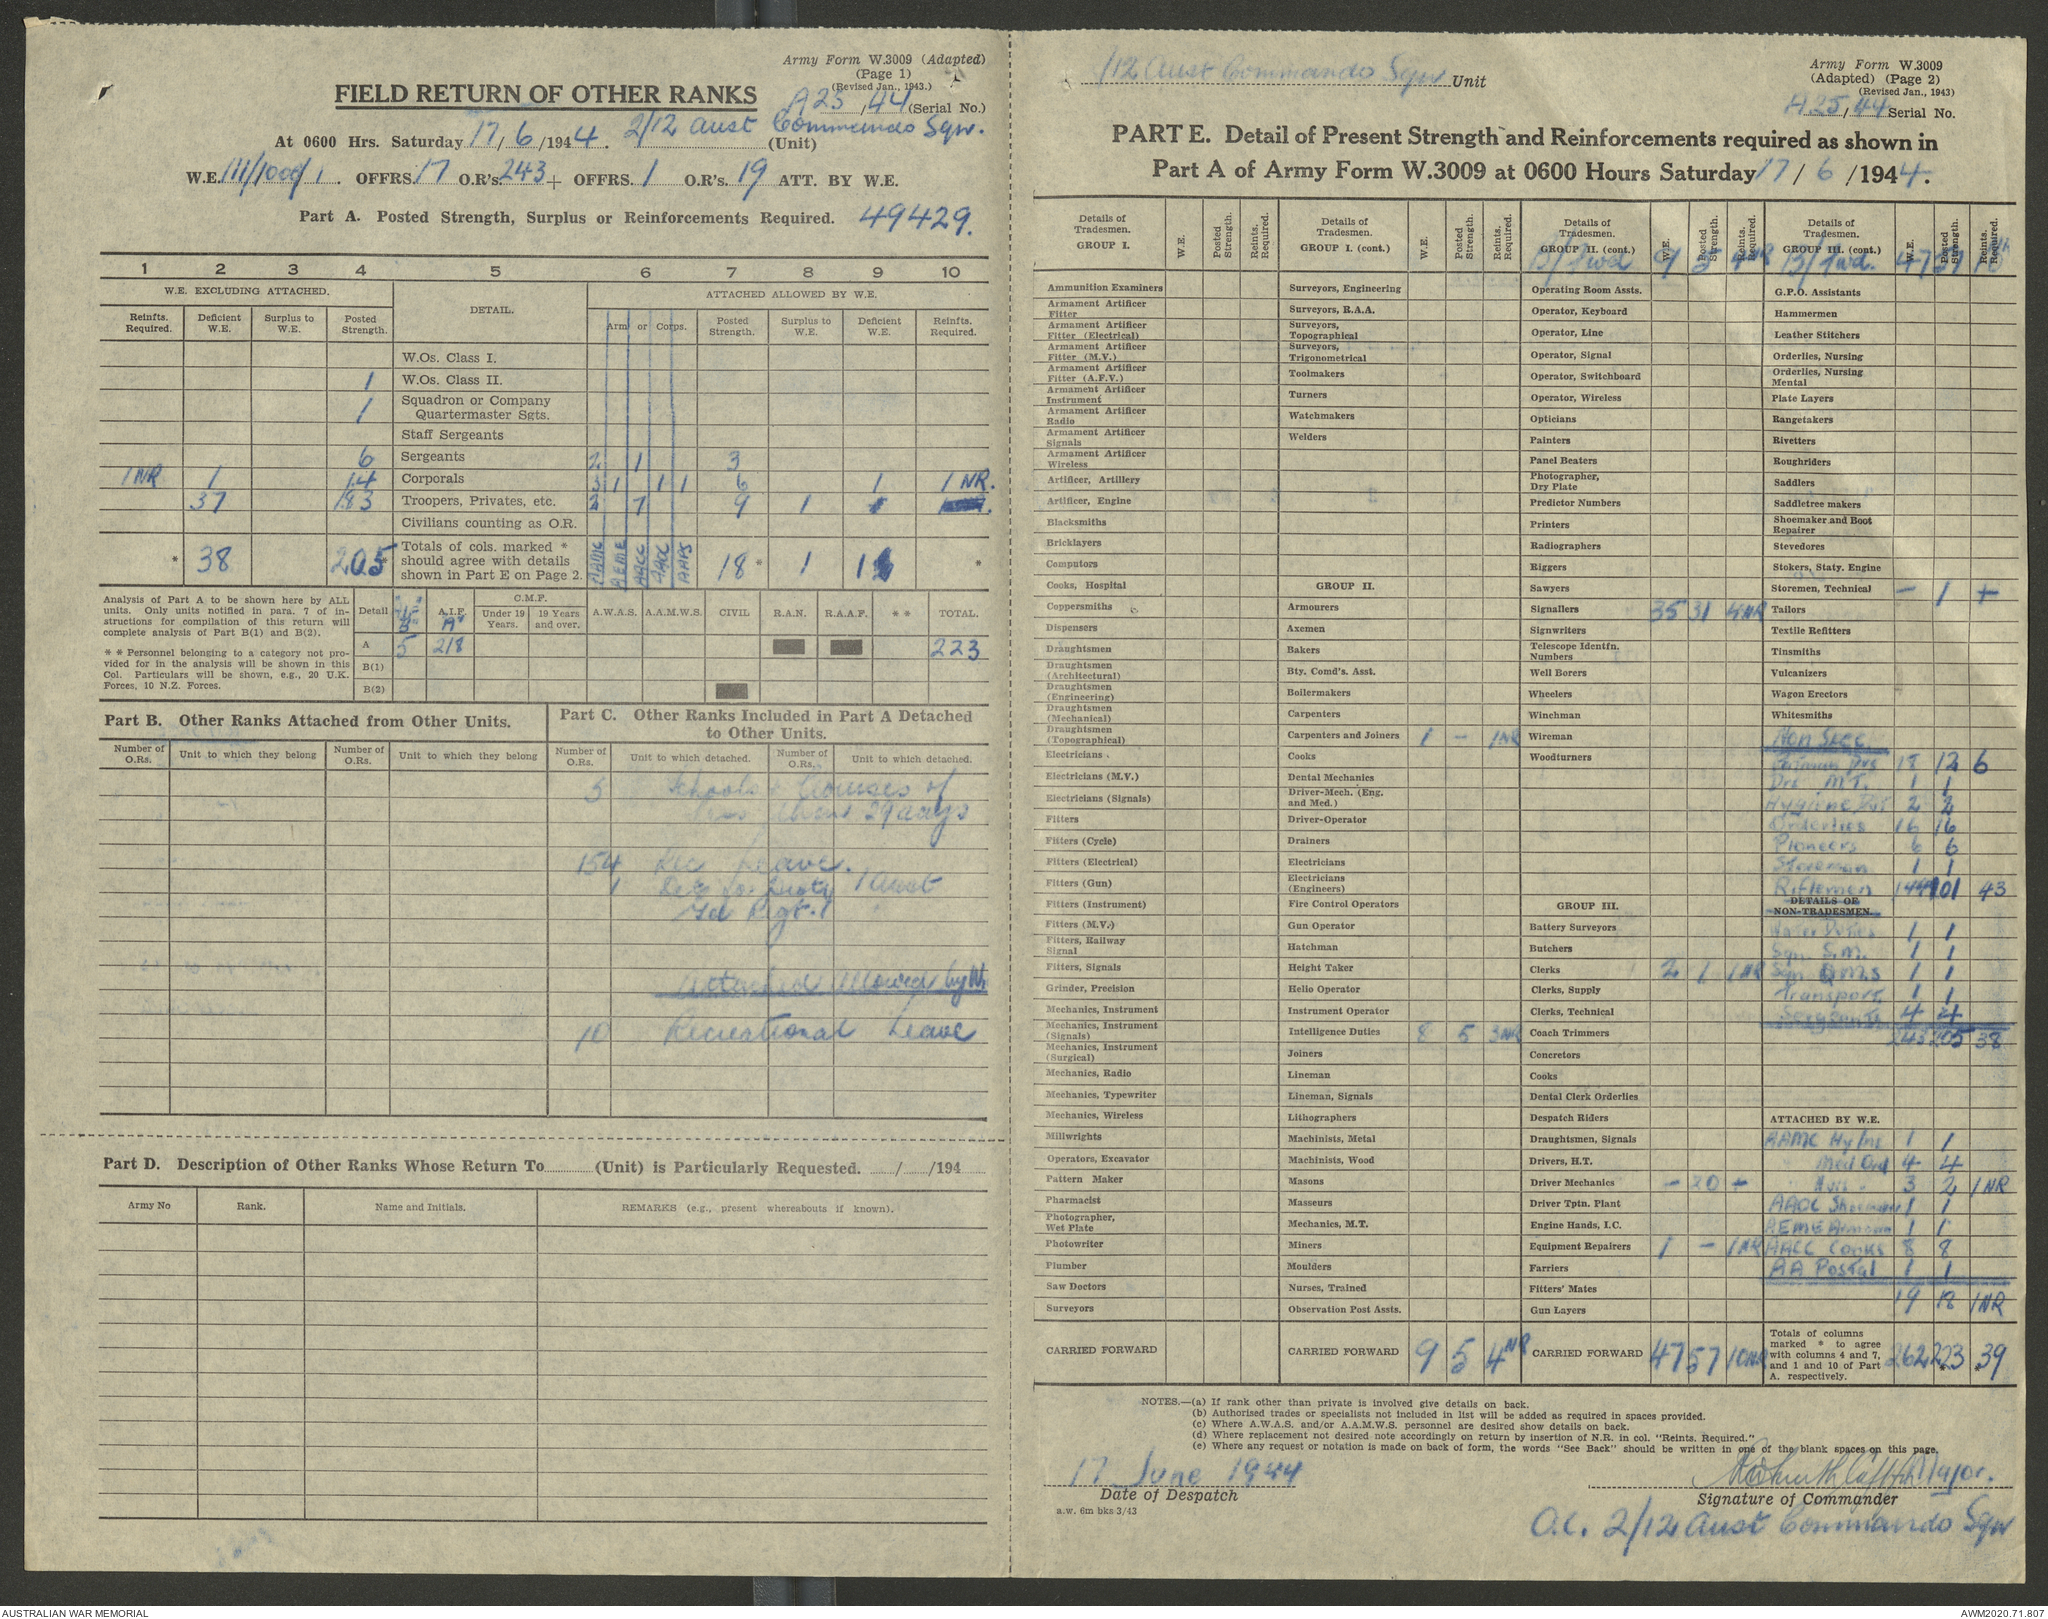 Army Form W.3009 (Adapted)
(Page 1)
(Revised Jan., 1943.)
FIELD RETURN OF OTHER RANKS
A25/44 (Serial No.)
At 0600 Hrs. Saturday 17/6/1944. 2/12 Aust Commando Sqn. (Unit)
W.E. 111/1000/1. OFFRS. 17 O.R's. 243 + OFFRS. 1 O.R's. 19 ATT. BY W.E.
Part A. Posted Strength, Surplus or Reinforcements Required. 49429.
1 2 3 4 5 6 7 8 9 10
W.E. EXCLUDING ATTACHED. DETAIL. ATTACHED ALLOWED BY W.E.
Reinfts. Required. Deficient W.E. Surplus to W.E. Posted Strength. Arm or Corps. Posted Strength. Surplus to W.E. Deficient W.E. Reinfts. Required.
W.Os. Class I.
1 W.Os. Class II.
1 Squadron or Company Quartermaster Sgts.
Staff Sergeants
6 Sergeants 2 1 3
1 NR 1 14 Corporals 3 1 1 1 6 1 1 NR.
37 183 Troopers, Privates, etc. 2 7 9 1
Civilians counting as O.R.
* 38 205 Totals of cols. marked * should agree with details shown in Part E on Page 2. AAMC AEME AACC AAOC AAPS 18 * 1 *
Analysis of Part A to be shown here by ALL units. Only units notified in para. 7 of instructions for compilation of this return will complete analysis of Part B(1) and B(2).
** Personnel belonging to a category not provided for in the analysis will be shown in this Col. Particulars will be shown, e.g., 20 U.K. Forces, 10 N.Z. Forces.
Detail A.I.F. C.M.F. Under 19 Years. 19 Years and over. A.W.A.S. A.A.M.W.S. CIVIL R.A.N. R.A.A.F. ** TOTAL.
A 5 218 223
B(1)
B(2)
Part B. Other Ranks Attached from Other Units.
Part C. Other Ranks Included in Part A Detached to Other Units.
Number of O.Rs. Unit to which they belong Number of O.Rs. Unit to which they belong Number of O.Rs. Unit to which detached. Number of O.Rs. Unit to which detached.
5 Schools & Courses of
less than 29 days
154 Rec Leave.
1 Det for Duty 1 Aust
Fd Regt.
Attached Allowed by W.
10 Recreational Leave
Part D. Description of Other Ranks Whose Return To (Unit) is Particularly Requested. / /194
Army No Rank. Name and Initials. REMARKS (e.g., present whereabouts if known).
/12 Aust Commando Sqn Unit
Army Form W.3009
(Adapted) (Page 2)
(Revised Jan., 1943)
A25/44 Serial No.
PART E. Detail of Present Strength and Reinforcements required as shown in
Part A of Army Form W.3009 at 0600 Hours Saturday 17/6/1944.
Details of Tradesmen. GROUP I. W.E. Posted Strength. Reints. Required.
Ammunition Examiners
Armament Artificer Fitter
Armament Artificer Fitter (Electrical)
Armament Artificer Fitter (M.V.)
Armament Artificer Fitter (A.F.V.)
Armament Artificer Instrument
Armament Artificer Radio
Armament Artificer Signals
Armament Artificer Wireless
Artificer, Artillery
Artificer, Engine
Blacksmiths
Bricklayers
Computors
Cooks, Hospital
Coppersmiths
Dispensers
Draughtsmen
Draughtsmen (Architectural)
Draughtsmen (Engineering)
Draughtsmen (Mechanical)
Draughtsmen (Topographical)
Electricians
Electricians (M.V.)
Electricians (Signals)
Fitters
Fitters (Cycle)
Fitters (Electrical)
Fitters (Gun)
Fitters (Instrument)
Fitters (M.V.)
Fitters, Railway Signal
Fitters, Signals
Grinder, Precision
Mechanics, Instrument
Mechanics, Instrument (Signals)
Mechanics, Instrument (Surgical)
Mechanics, Radio
Mechanics, Typewriter
Mechanics, Wireless
Millwrights
Operators, Excavator
Pattern Maker
Pharmacist
Photographer, Wet Plate
Photowriter
Plumber
Saw Doctors
Surveyors
CARRIED FORWARD
Details of Tradesmen. GROUP I. (cont.) W.E. Posted Strength. Reints. Required.
Surveyors, Engineering
Surveyors, R.A.A.
Surveyors, Topographical
Surveyors, Trigonometrical
Toolmakers
Turners
Watchmakers
Welders
GROUP II.
Armourers
Axemen
Bakers
Bty. Comd's. Asst.
Boilermakers
Carpenters
Carpenters and Joiners 1 - 1NR
Cooks
Dental Mechanics
Driver-Mech. (Eng. and Med.)
Driver-Operator
Drainers
Electricians
Electricians (Engineers)
Fire Control Operators
Gun Operator
Hatchman
Height Taker
Helio Operator
Instrument Operator
Intelligence Duties 8 5 3NR
Joiners
Lineman
Lineman, Signals
Lithographers
Machinists, Metal
Machinists, Wood
Masons
Masseurs
Mechanics, M.T.
Miners
Moulders
Nurses, Trained
Observation Post Assts.
CARRIED FORWARD 9 5 4NR
Details of Tradesmen. GROUP II. (cont.) W.E. Posted Strength. Reints. Required.
B/Fwd 9 5 4NR
Operating Room Assts.
Operator, Keyboard
Operator, Line
Operator, Signal
Operator, Switchboard
Operator, Wireless
Opticians
Painters
Panel Beaters
Photographer, Dry Plate
Predictor Numbers
Printers
Radiographers
Riggers
Sawyers
Signallers 35 31 4NR
Signwriters
Telescope Identfn. Numbers
Well Borers
Wheelers
Winchman
Wireman
Woodturners
GROUP III.
Battery Surveyors
Butchers
Clerks 2 1 1NR
Clerks, Supply
Clerks, Technical
Coach Trimmers
Concretors
Cooks
Dental Clerk Orderlies
Despatch Riders
Draughtsmen, Signals
Drivers, H.T.
Driver Mechanics - 20 +
Driver Tptn. Plant
Engine Hands, I.C.
Equipment Repairers 1 - 1NR
Farriers
Fitters' Mates
Gun Layers
CARRIED FORWARD 47 57 10NR
Details of Tradesmen. GROUP III. (cont.) W.E. Posted Strength. Reints. Required.
B/fwd. 47 57 10
G.P.O. Assistants
Hammermen
Leather Stitchers
Orderlies, Nursing
Orderlies, Nursing Mental
Plate Layers
Rangetakers
Rivetters
Roughriders
Saddlers
Saddletree makers
Shoemaker and Boot Repairer
Stevedores
Stokers, Staty. Engine
Storemen, Technical - 1 +
Tailors
Textile Refitters
Tinsmiths
Vulcanizers
Wagon Erectors
Whitesmiths
Non Spec
Batman Dvs 18 12 6
Drs. M.T. 1 1
Hygiene Dut 2 2
Orderlies 16 16
Pioneers 6 6
Storeman 1 1
Riflemen 144 101 43
DETAILS OF NON-TRADESMEN.
Water Duties 1 1
Sqn S.M. 1 1
Sqn Q.M.S 1 1
Transport. 1 1
Sergeants 4 4
243 205 38
ATTACHED BY W.E.
AAMC Hy 1 1
Med Ord 4 4
3 2 1NR
AAOC Shoemaker 1 1
AEME Armourer 1 1
AACC Cooks 8 8
AA Postal 1 1
19 18 1NR
Totals of columns marked * to agree with columns 4 and 7, and 1 and 10 of Part A. respectively. 262 223 39
NOTES.—(a) If rank other than private is involved give details on back.
(b) Authorised trades or specialists not included in list will be added as required in spaces provided.
(c) Where A.W.A.S. and/or A.A.M.W.S. personnel are desired show details on back.
(d) Where replacement not desired note accordingly on return by insertion of N.R. in col. "Reints. Required."
(e) Where any request or notation is made on back of form, the words "See Back" should be written in one of the blank spaces on this page.
17 June 1944
Date of Despatch
a.w. 6m bks 3/43
Major.
Signature of Commander
O.C. 2/12 Aust Commando Sqn
AUSTRALIAN WAR MEMORIAL
AWM2020.71.807